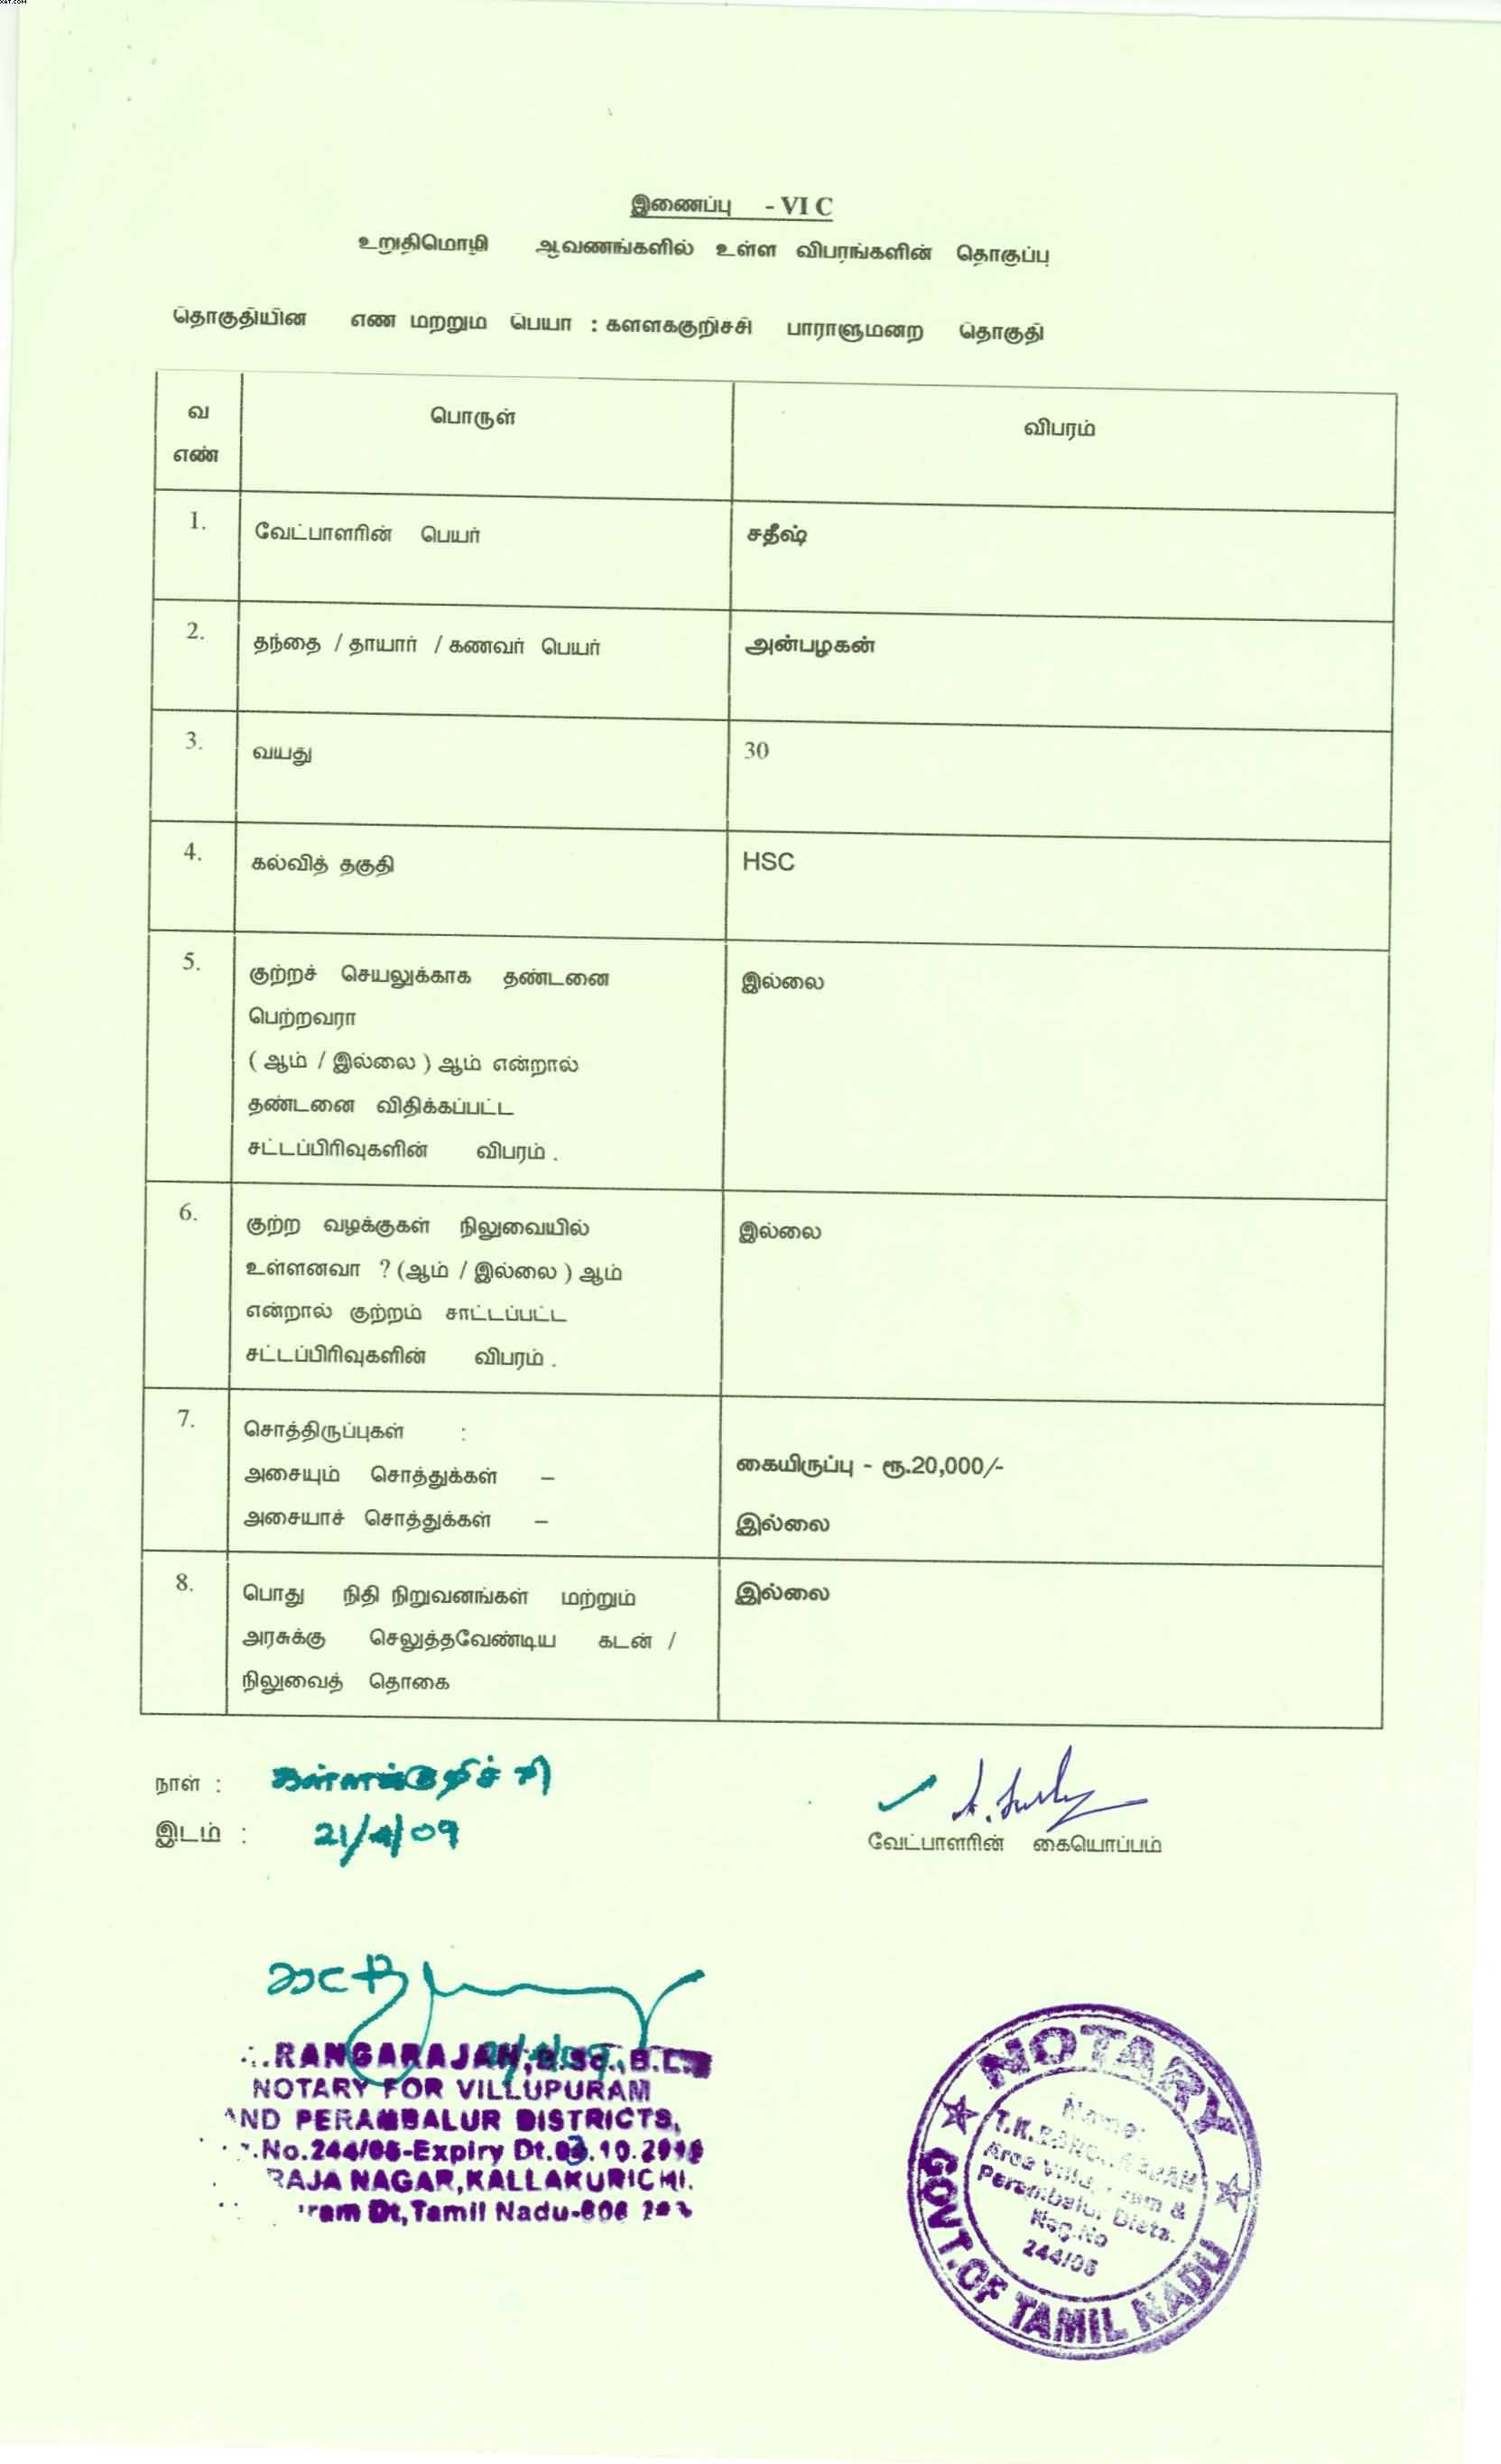 இணைப்பு - VI C
உறுதிமொழி ஆவணங்களில் உள்ள விபரங்களின் தொகுப்பு
தொகுதியின எண மற்றும பெயா : களளககுறிச்சி பாராளுமனற தொகுதி
வ
எண்
பொருள்
விபரம்
1.
வேட்பாளரின் பெயர்
சதீஷ்
2.
தந்தை / தாயார் / கணவர் பெயர்
அன்பழகன்
3.
வயது
30
4.
கல்வித் தகுதி
HSC
5.
குற்றச் செயலுக்காக தண்டனை
பெற்றவரா
( ஆம் / இல்லை ) ஆம் என்றால்
தண்டனை விதிக்கப்பட்ட
சட்டப்பிரிவுகளின் விபரம் .
இல்லை
6.
குற்ற வழக்குகள் நிலுவையில்
உள்ளனவா ? (ஆம் / இல்லை ) ஆம்
என்றால் குற்றம் சாட்டப்பட்ட
சட்டப்பிரிவுகளின் விபரம் .
இல்லை
7.
சொத்திருப்புகள் :
அசையும் சொத்துக்கள் –
அசையாச் சொத்துக்கள் –
கையிருப்பு - ரூ.20,000/-
இல்லை
8.
பொது நிதி நிறுவனங்கள் மற்றும்
அரசுக்கு செலுத்தவேண்டிய கடன் /
நிலுவைத் தொகை
இல்லை
நாள் : கள்ளக்குறிச்சி
இடம் : 21/4/09
வேட்பாளரின் கையொப்பம்
RANGARAJAN, B.Sc., B.L.,
NOTARY FOR VILLUPURAM
AND PERAMBALUR DISTRICTS,
No.244/06-Expiry Dt.03.10.
RAJA NAGAR, KALLAKURICHI.
Dt, Tamil Nadu-606
NOTARY
GOVT. OF TAMIL NADU
Name:
T.K.
Area
Perambalur Dists.
Reg.No
244/06